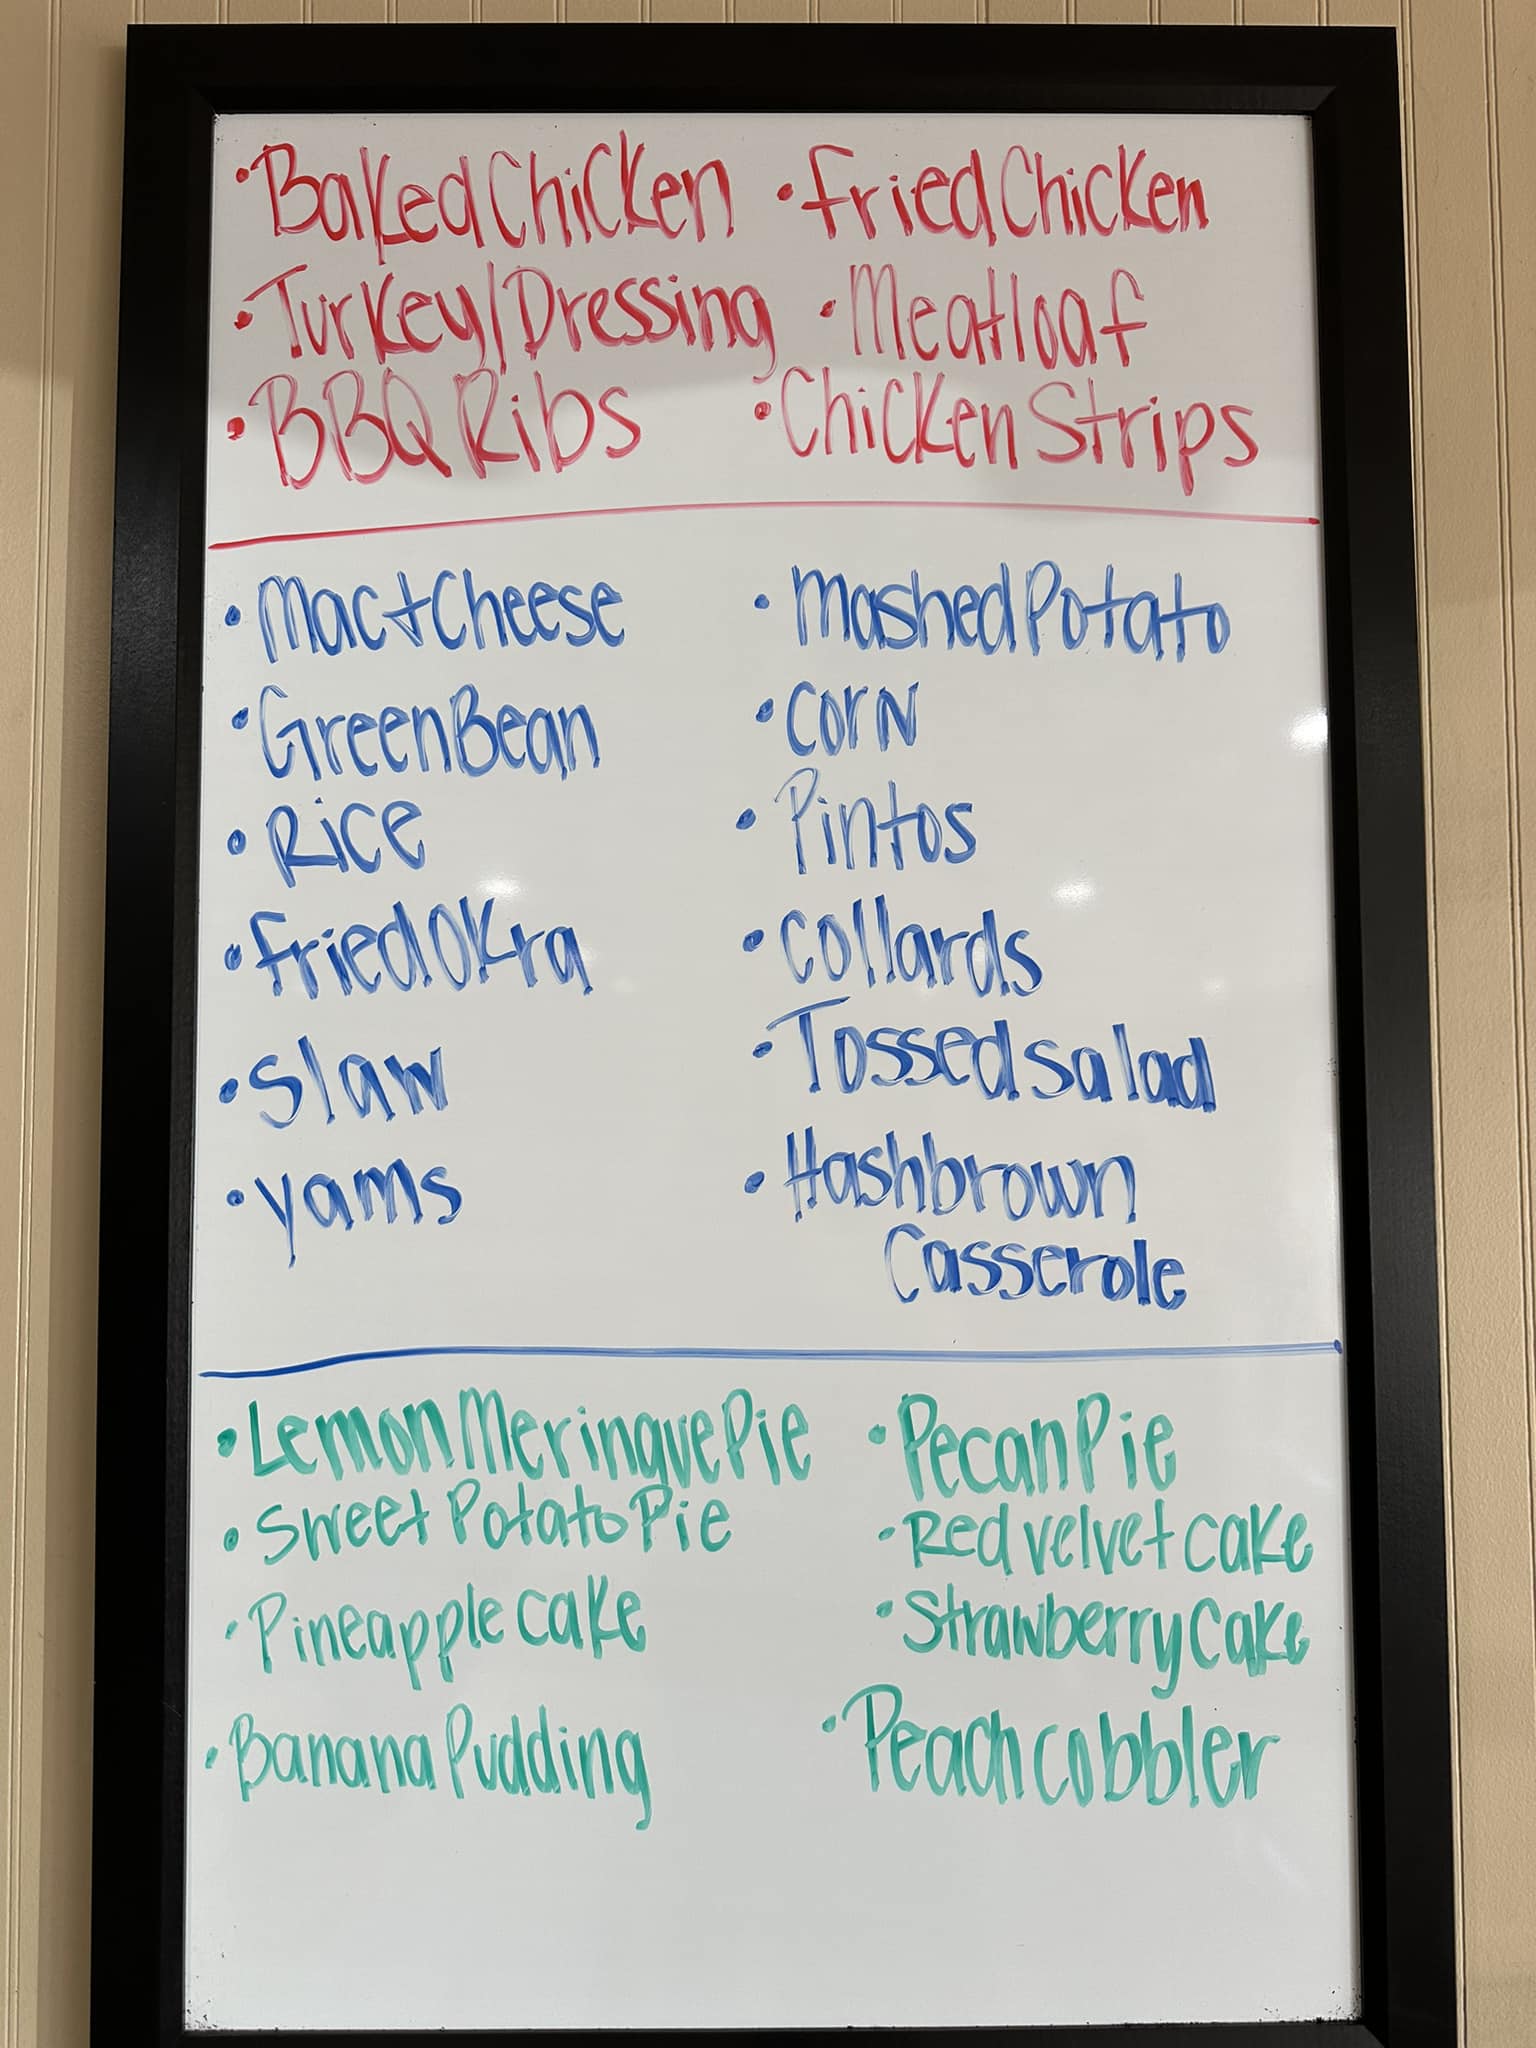 • Baked Chicken • Fried Chicken
• Turkey/Dressing • Meatloaf
• BBQ Ribs • Chicken Strips
• Mac + Cheese • Mashed Potato
• Green Bean • Corn
• Rice • Pintos
• Fried Okra • Collards
• Slaw • Tossed Salad
• Yams • Hashbrown
Casserole
• Lemon Meringue Pie • Pecan Pie
• Sweet Potato Pie • Red Velvet Cake
• Pineapple Cake • Strawberry Cake
• Banana Pudding • Peach Cobbler